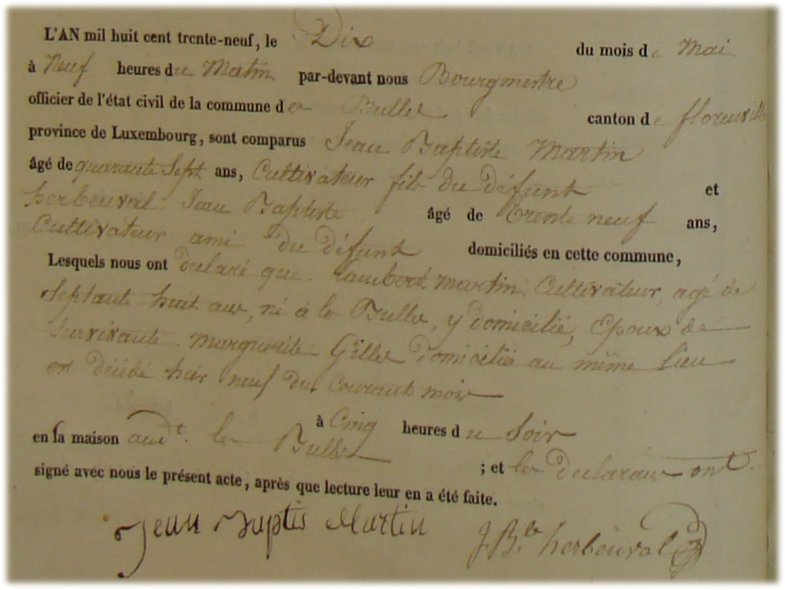 L'AN mil huit cent trente-neuf, le Dix du mois de Mai
à Neuf heures du Matin par-devant nous Bourgmestre
officier de l'état civil de la commune de Bulles canton de florenville
province de Luxembourg, sont comparus Jean Baptiste Martin
âgé de quarante Sept ans, Cultivateur fils du défunt et
herbeuval Jean Baptiste âgé de trente neuf ans,
Cultivateur ami du défunt domiciliés en cette commune,
Lesquels nous ont declaré que Lambert Martin Cultivateur, agé de
Septante huit ans, né à les Bulles, y domicilié, Epoux de
Survivante Marguerite Gilles domiciliée au même lieu
est décédé hier neuf du Courant mois
à Cinq heures du Soir
en sa maison audt. les Bulles ; et les declarans ont
signé avec nous le présent acte, après que lecture leur en a été faite.
Jean Baptis Martin J. Bte herbeuval